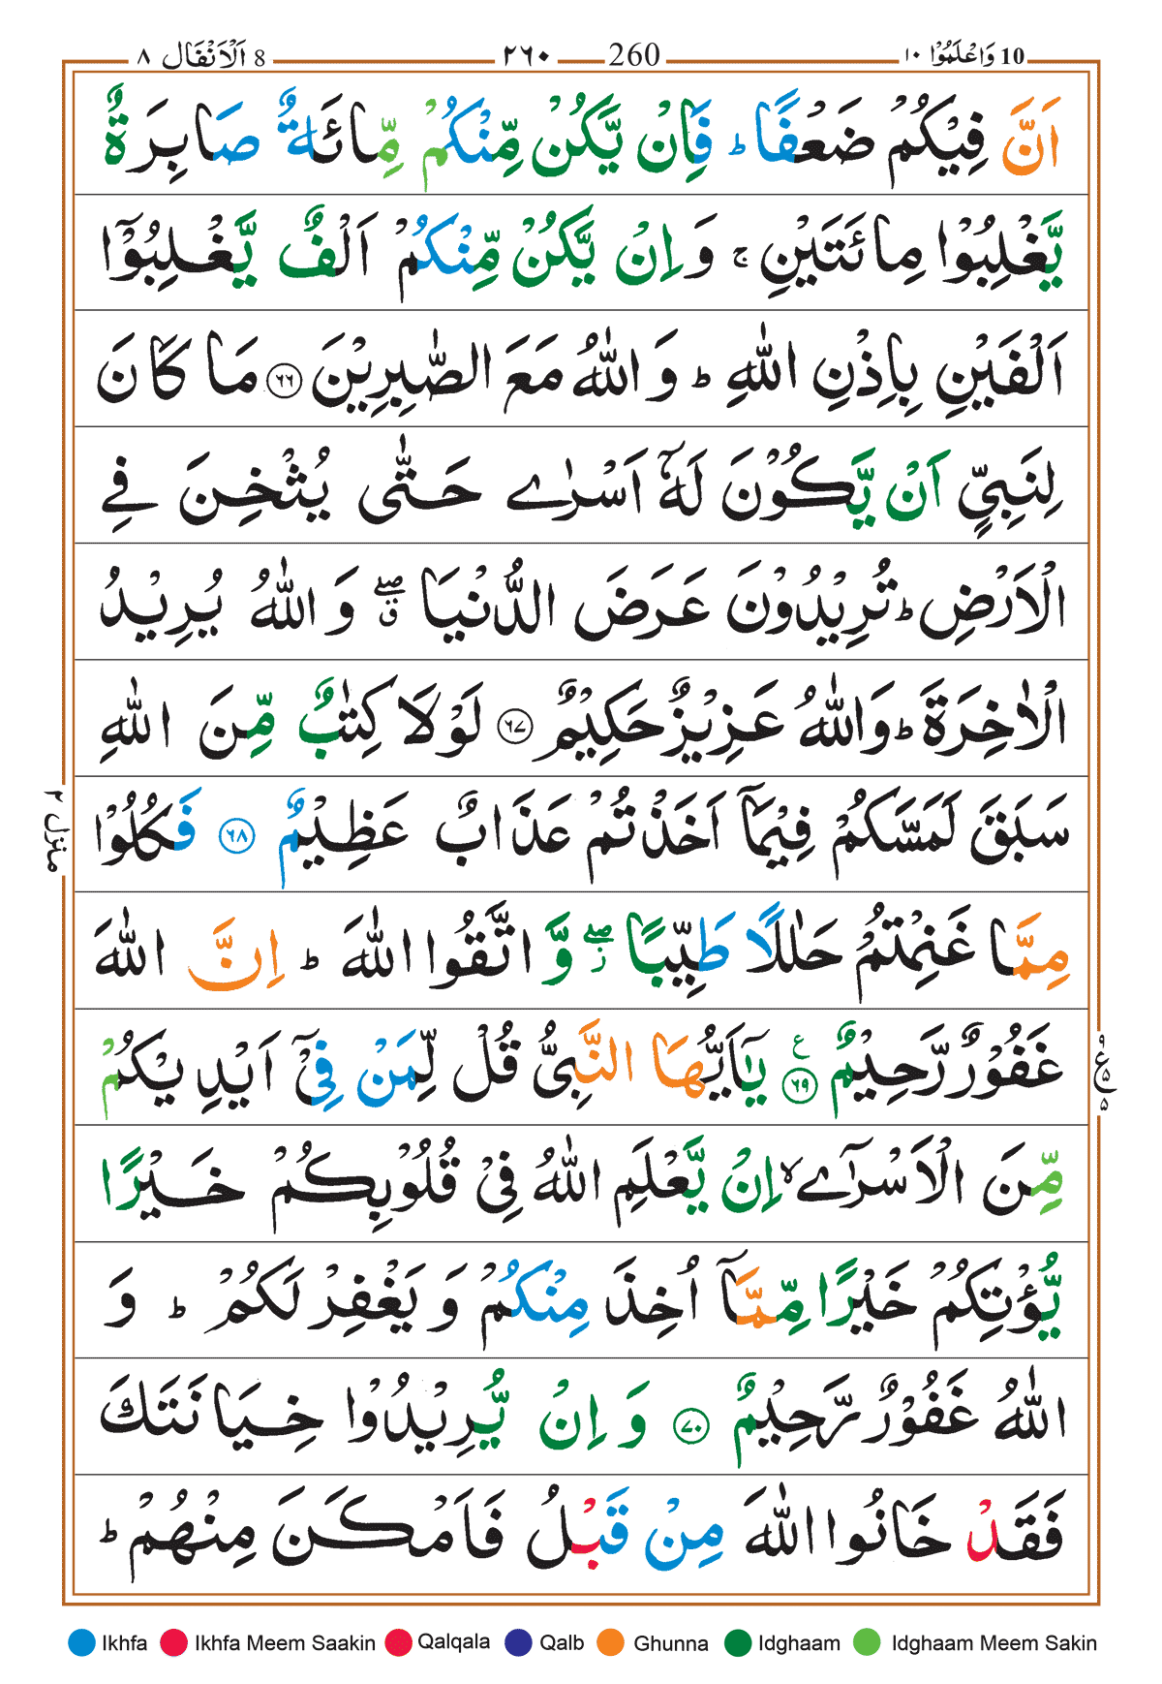 ٨ اَلْاَنْفَال 8 ٢٦٠ 260 ١٠ وَاعْلَمُوْا 10
اَنَّ فِيْكُمْ ضَعْفًا ؕ فَاِنْ يَّكُنْ مِّنْكُمْ مِّائَةٌ صَابِرَةٌ
يَّغْلِبُوْا مِائَتَيْنِ ۚ وَاِنْ يَّكُنْ مِّنْكُمْ اَلْفٌ يَّغْلِبُوْۤا
اَلْفَيْنِ بِاِذْنِ اللّٰهِ ؕ وَ اللّٰهُ مَعَ الصّٰبِرِيْنَ ٦٦ مَا كَانَ
لِنَبِيٍّ اَنْ يَّكُوْنَ لَهٗۤ اَسْرٰى حَتّٰى يُثْخِنَ فِى
الْاَرْضِ ؕ تُرِيْدُوْنَ عَرَضَ الدُّنْيَا ۖۗ وَ اللّٰهُ يُرِيْدُ
الْاٰخِرَةَ ؕ وَاللّٰهُ عَزِيْزٌ حَكِيْمٌ ٦٧ لَوْلَا كِتٰبٌ مِّنَ اللّٰهِ
سَبَقَ لَمَسَّكُمْ فِيْمَاۤ اَخَذْتُمْ عَذَابٌ عَظِيْمٌ ٦٨ فَكُلُوْا
مِمَّا غَنِمْتُمْ حَلٰلًا طَيِّبًا ۖز وَّ اتَّقُوا اللّٰهَ ؕ اِنَّ اللّٰهَ
غَفُوْرٌ رَّحِيْمٌ ٦٩ ع يٰۤاَيُّهَا النَّبِىُّ قُلْ لِّمَنْ فِىْۤ اَيْدِيْكُمْ
مِّنَ الْاَسْرٰٓى ۙ اِنْ يَّعْلَمِ اللّٰهُ فِىْ قُلُوْبِكُمْ خَيْرًا
يُّؤْتِكُمْ خَيْرًا مِّمَّاۤ اُخِذَ مِنْكُمْ وَ يَغْفِرْ لَكُمْ ؕ وَ
اللّٰهُ غَفُوْرٌ رَّحِيْمٌ ٧٠ وَ اِنْ يُّرِيْدُوْا خِيَانَتَكَ
فَقَدْ خَانُوا اللّٰهَ مِنْ قَبْلُ فَاَمْكَنَ مِنْهُمْ ؕ
منزل ٢
ع ٥ ٥
Ikhfa Ikhfa Meem Saakin Qalqala Qalb Ghunna Idghaam Idghaam Meem Sakin